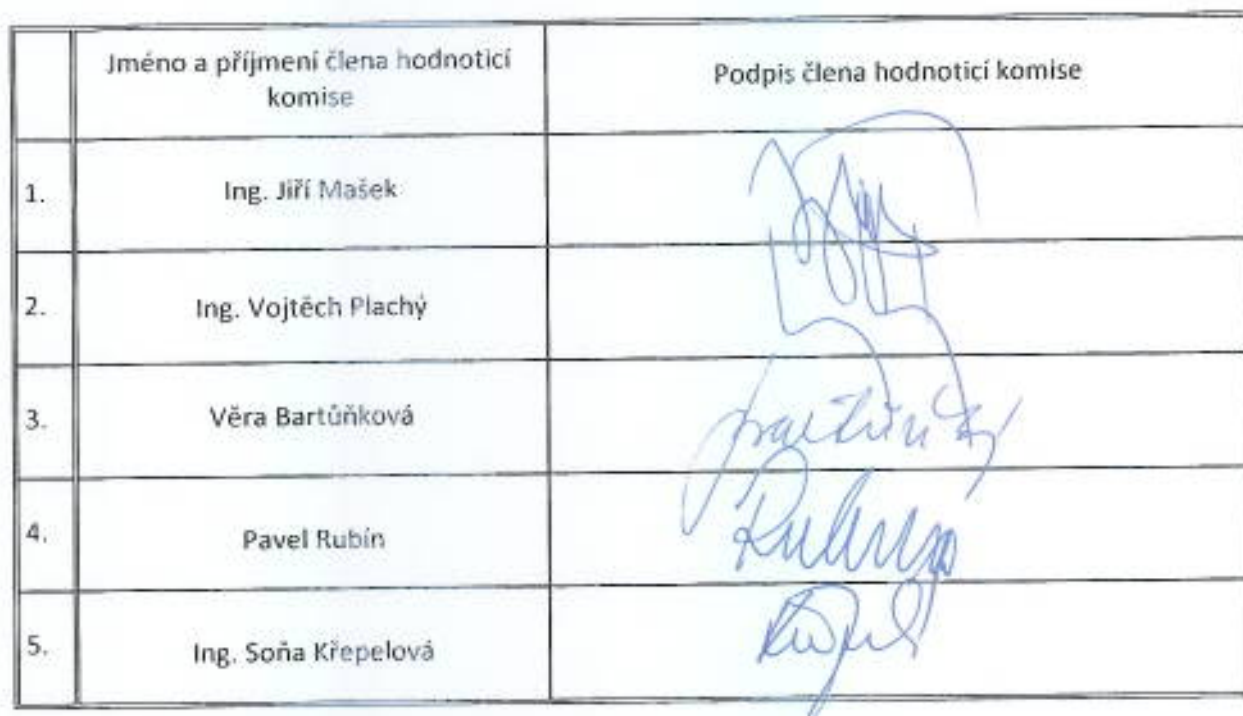 Jméno a příjmení člena hodnoticí
komise
Podpis člena hodnoticí komise
1. Ing. Jiří Mašek
2. Ing. Vojtěch Plachý
3. Věra Bartůňková
4. Pavel Rubín
5. Ing. Soňa Křepelová